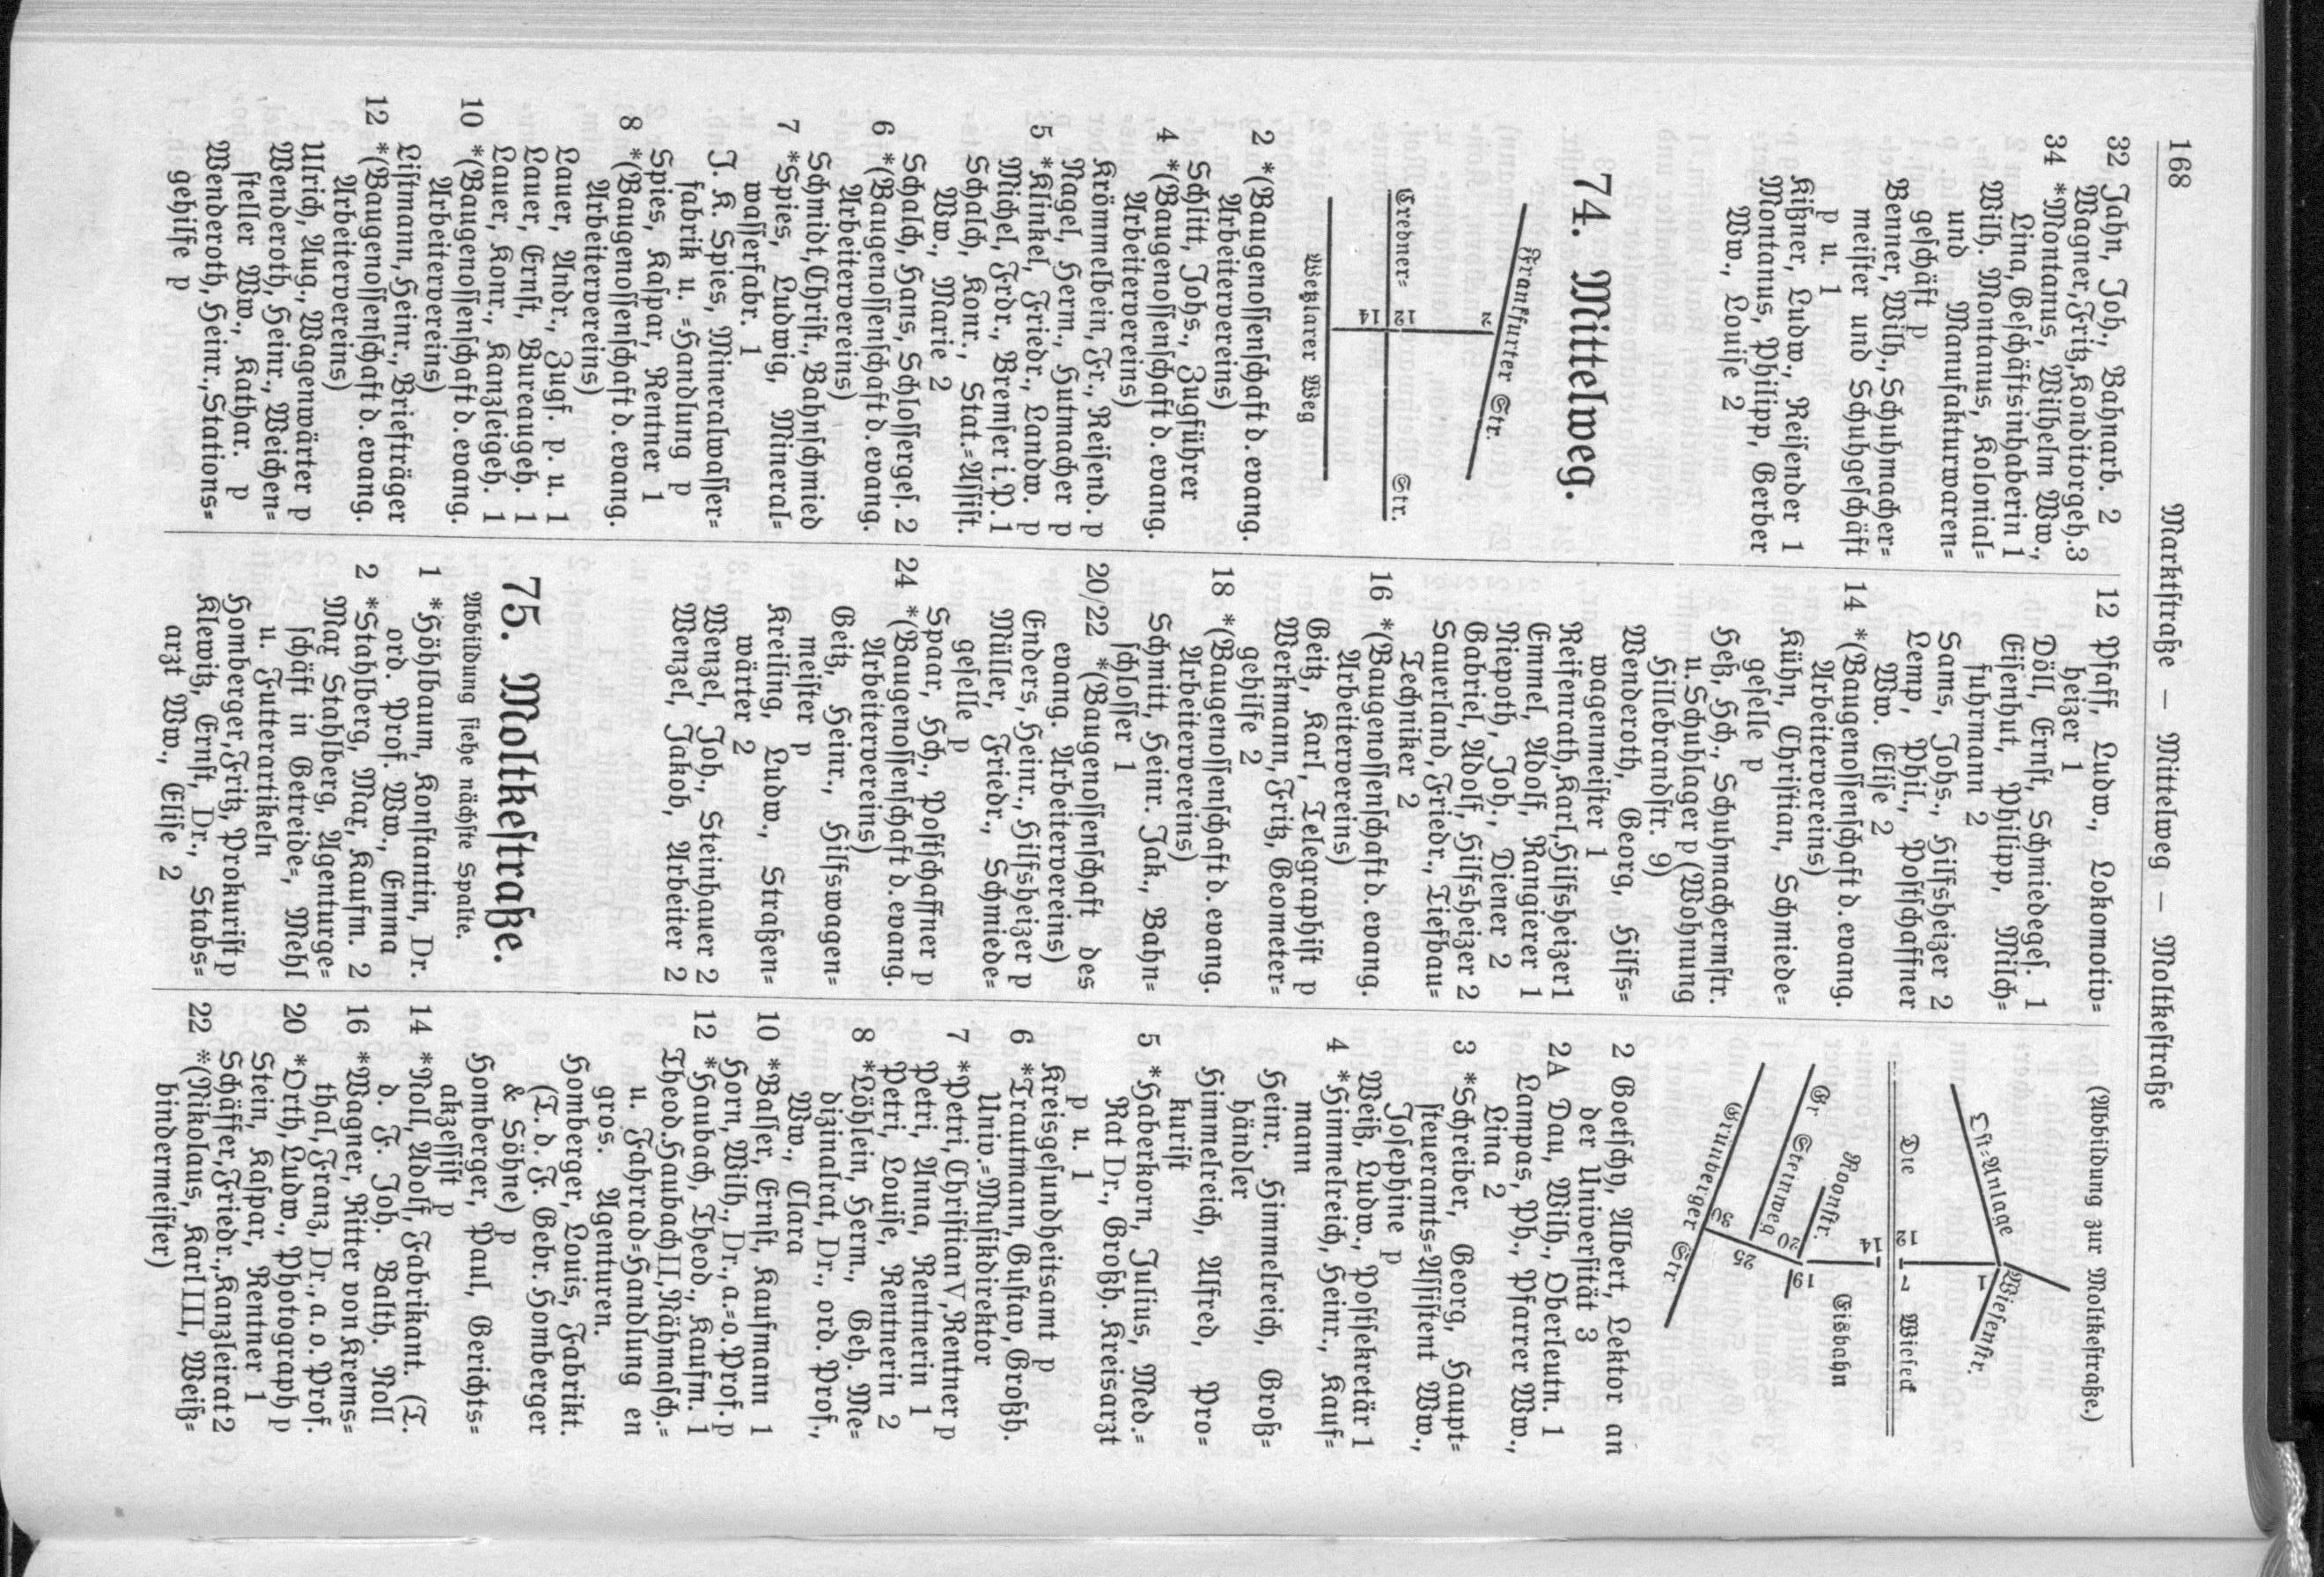 168
Marktſtraße — Mittelweg — Moltkeſtraße
32 Jahn, Joh., Bahnarb. 2
Wagner, Fritz, Konditorgeh. 3
34 *Montanus, Wilhelm Ww.,
Lina, Geſchäftsinhaberin 1
Wilh. Montanus, Kolonial=
und Manufakturwaren=
geſchäft p
Benner, Wilh., Schuhmacher=
meiſter und Schuhgeſchäft
p u. 1
Kißner, Ludw., Reiſender 1
Montanus, Philipp, Gerber
Ww., Louiſe 2
74. Mittelweg.
Frankfurter Str.
2
Credner=
12
14
Str.
Wetzlarer Weg
2 *(Baugenoſſenſchaft d. evang.
Arbeitervereins)
Schlitt, Johs., Zugführer
4 *(Baugenoſſenſchaft d. evang.
Arbeitervereins)
Krömmelbein, Fr., Reiſend. p
Nagel, Herm., Hutmacher p
5 *Klinkel, Friedr., Landw. p
Michel, Frdr., Bremſer i. P. 1
Schalch, Konr., Stat.=Aſſiſt.
Ww., Marie 2
Schalch, Hans, Schloſſergeſ. 2
6 *(Baugenoſſenſchaft d. evang.
Arbeitervereins)
Schmidt, Chriſt., Bahnſchmied
7 *Spies, Ludwig, Mineral=
waſſerfabr. 1
J. K. Spies, Mineralwaſſer=
fabrik u. =Handlung p
Spies, Kaſpar, Rentner 1
8 *(Baugenoſſenſchaft d. evang.
Arbeitervereins)
Lauer, Andr., Zugf. p. u. 1
Lauer, Ernſt, Bureaugeh. 1
Lauer, Konr., Kanzleigeh. 1
10 *(Baugenoſſenſchaft d. evang.
Arbeitervereins)
Liſtmann, Heinr., Briefträger
12 *(Baugenoſſenſchaft d. evang.
Arbeitervereins)
Ulrich, Aug., Wagenwärter p
Wenderoth, Heinr., Weichen=
ſteller Ww., Kathar. p
Wenderoth, Heinr., Stations=
gehilfe p
12 Pfaff, Ludw., Lokomotiv=
heizer 1
Döll, Ernſt, Schmiedegeſ. 1
Eiſenhut, Philipp, Milch=
fuhrmann 2
Sams, Johs., Hilfsheizer 2
Lemp, Phil., Poſtſchaffner
Ww. Eliſe 2
14 *(Baugenoſſenſchaft d. evang.
Arbeitervereins)
Kühn, Chriſtian, Schmiede=
geſelle p
Heß, Hch., Schuhmachermſtr.
u. Schuhlager p (Wohnung
Hillebrandſtr. 9)
Wenderoth, Georg, Hilfs=
wagenmeiſter 1
Reiſenrath, Karl, Hilfsheizer 1
Emmel, Adolf, Rangierer 1
Niepoth, Joh., Diener 2
Gabriel, Adolf, Hilfsheizer 2
Sauerland, Friedr., Tiefbau=
Techniker 2
16 *(Baugenoſſenſchaft d. evang.
Arbeitervereins)
Geitz, Karl, Telegraphiſt p
Merkmann, Fritz, Geometer=
gehilfe 2
18 *(Baugenoſſenſchaft d. evang.
Arbeitervereins)
Schmitt, Heinr. Jak., Bahn=
ſchloſſer 1
20/22 *(Baugenoſſenſchaft des
evang. Arbeitervereins)
Enders, Heinr., Hilfsheizer p
Müller, Friedr., Schmiede=
geſelle p
Spaar, Hch., Poſtſchaffner p
24 *(Baugenoſſenſchaft d. evang.
Arbeitervereins)
Geitz, Heinr., Hilfswagen=
meiſter p
Kreiling, Ludw., Straßen=
wärter 2
Wenzel, Joh., Steinhauer 2
Wenzel, Jakob, Arbeiter 2
75. Moltkeſtraße.
Abbildung ſiehe nächſte Spalte.
1 *Höhlbaum, Konſtantin, Dr.
ord. Prof. Ww., Emma
2 *Stahlberg, Max, Kaufm. 2
Max Stahlberg, Agenturge=
ſchäft in Getreide=, Mehl
u. Futterartikeln
Homberger, Fritz, Prokuriſt p
Klewitz, Ernſt, Dr., Stabs=
arzt Ww., Eliſe 2
(Abbildung zur Moltkeſtraße.)
Oſt=Anlage
Wieſenſtr.
1
Die
12
7
Wieſeck
14
Eisbahn
Roonſtr.
20
19
Gr Steinweg
25
30
Grünberger Str.
2 Goetſchy, Albert, Lektor an
der Univerſität 3
2A Dau, Wilh., Oberleutn. 1
Lampas, Ph., Pfarrer Ww.,
Lina 2
3 *Schreiber, Georg, Haupt=
ſteueramts=Aſſiſtent Ww.,
Joſephine p
Weiß, Ludw., Poſtſekretär 1
4 *Himmelreich, Heinr., Kauf=
mann
Heinr. Himmelreich, Groß=
händler
Himmelreich, Alfred, Pro=
kuriſt
5 *Haberkorn, Julius, Med.=
Rat Dr., Großh. Kreisarzt
p u. 1
Kreisgeſundheitsamt p
6 *Trautmann, Guſtav, Großh.
Univ.=Muſikdirektor
7 *Petri, Chriſtian V, Rentner p
Petri, Anna, Rentnerin 1
Petri, Louiſe, Rentnerin 2
8 *Löhlein, Herm., Geh. Me=
dizinalrat, Dr., ord. Prof.,
Ww., Clara
10 *Balſer, Ernſt, Kaufmann 1
Horn, Wilh., Dr., a.=o. Prof. p
12 *Haubach, Theod., Kaufm. 1
Theod. Haubach II, Nähmaſch.=
u. Fahrrad=Handlung en
gros. Agenturen.
Homberger, Louis, Fabrikt.
(T. d. F. Gebr. Homberger
& Söhne) p
Homberger, Paul, Gerichts=
akzeſſiſt p
14 *Noll, Adolf, Fabrikant. (T.
d. F. Joh. Balth. Noll
16 *Wagner, Ritter von Krems=
thal, Franz, Dr., a. o. Prof.
20 *Orth, Ludw., Photograph p
Stein, Kaſpar, Rentner 1
Schäffer, Friedr., Kanzleirat 2
22 *(Nikolaus, Karl III, Weiß=
bindermeiſter)